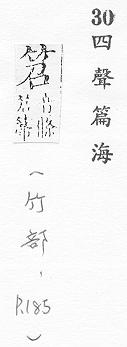 30四聲篇海
笤
音條
(竹部, P.185)